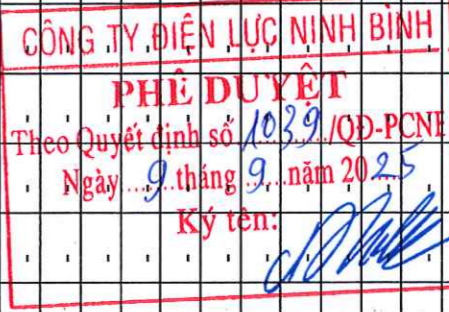 CÔNG TY ĐIỆN LỰC NINH BÌNH
PHÊ DUYỆT
Theo Quyết định số 1039/QĐ-PCNB
Ngày 9 tháng 9 năm 2025
Ký tên: